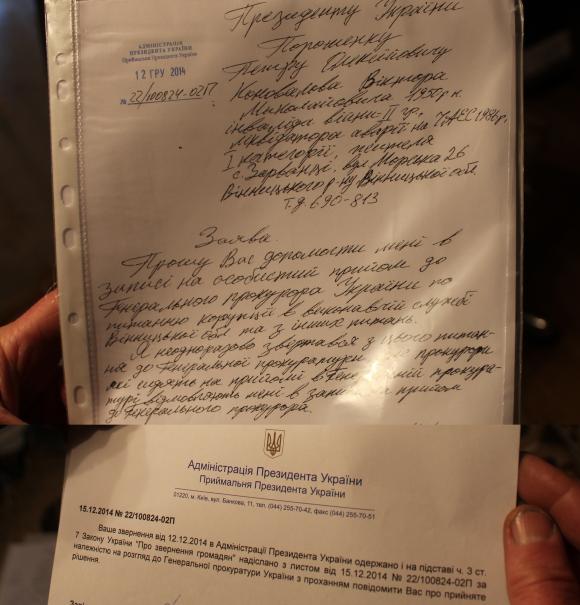 Президенту України
Порошенку
Петру Олексійовичу
АДМІНІСТРАЦІЯ
ПРЕЗИДЕНТА УКРАЇНИ
Приймальня Президента України
12 ГРУ 2014
№ 22/100824-02П
Коновалова Віктора
Миколайовича 1950р.н.
інваліда війни II гр.,
ліквідатора аварії на ЧАЕС 1986р.
I категорії, жителя
с. Зарванці, вул Морська 26
Вінницького р-ну Вінницької обл.
т.д. 690-813
Заява.
Прошу Вас допомогти мені в
записі на особистий прийом до
Генерального прокурора України по
питанню корупції в виконавчій службі
Вінницької обл та з інших питань.
Я неодноразово звертався з цього питан-
ня до Генеральної прокуратури прокурори
які сидять на прийомі в Генеральній прокура-
турі відмовляють мені в записі на прийом
до Генерального прокурора.
Адміністрація Президента України
Приймальня Президента України
01220, м. Київ, вул. Банкова, 11, тел. (044) 255-70-42, факс (044) 255-70-51
15.12.2014 № 22/100824-02П
Ваше звернення від 12.12.2014 в Адміністрації Президента України одержано і на підставі ч. 3 ст.
7 Закону України "Про звернення громадян" надіслано з листом від 15.12.2014 № 22/100824-02П за
належністю на розгляд до Генеральної прокуратури України з проханням повідомити Вас про прийняте
рішення.